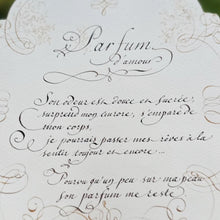 Parfum
d'amour
Son odeur est douce et sucrée,
surprend mon aurore, s'empare de
mon corps,
je pourrais passer mes rêves à la
sentir toujour et encore...
Pourvu qu'un peu sur ma peau
son parfum me reste